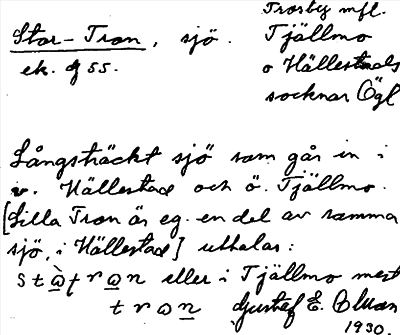 Trosby mfl.
Stor-Tron, sjö. Tjällmo
ek. g 55. o Hällestads
socknar Ögl
Långsträckt sjö som går in i
v. Hällestad och ö. Tjällmo.
[Lilla Tron är eg. en del av samma
sjö, i Hällestad] uttalas:
eller i Tjällmo mest
Gustaf E. Olman
1930.